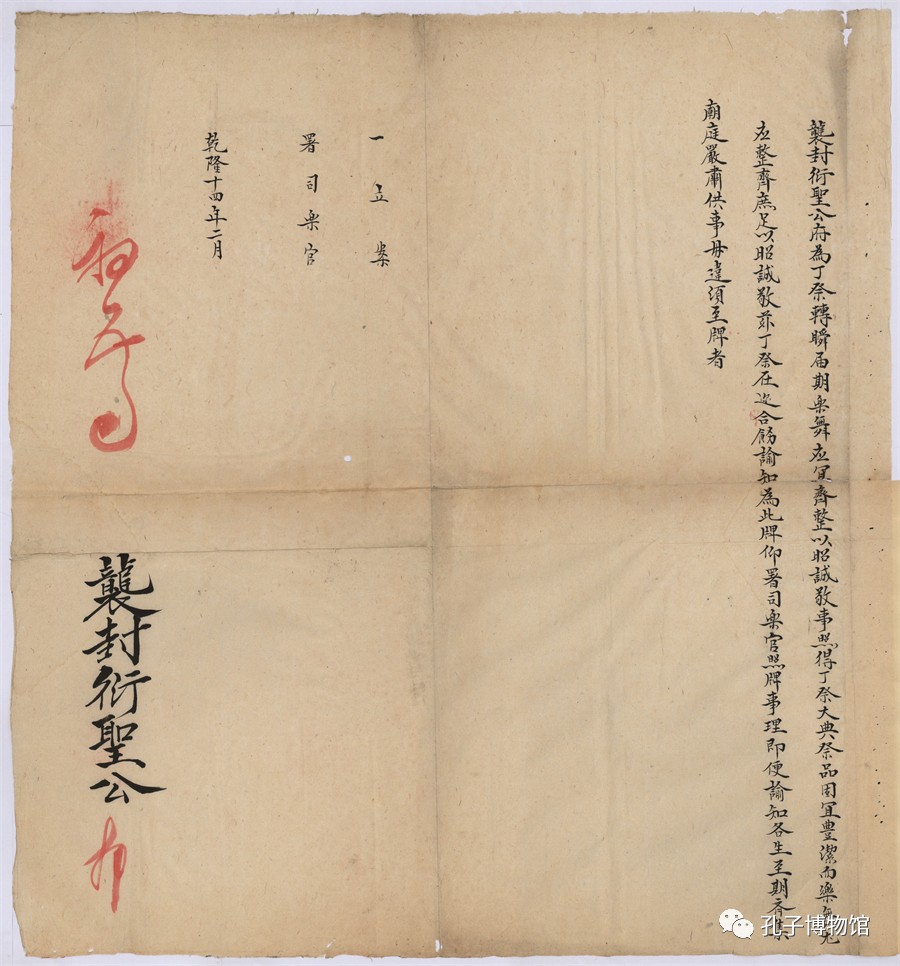 襲封衍聖公府為丁祭轉瞬届期樂舞应宜齊整以昭誠敬事照得丁祭大典祭品固宜豊潔而樂舞尤
应整齊庶足以昭誠敬茲丁祭在迩合飭諭知為此牌仰署司樂官照牌事理即便諭知各生至期齊集
廟庭嚴肅供事毋違須至牌者
一立案
署司樂官
乾隆十四年二月
初五日
襲封衍聖公
孔子博物馆